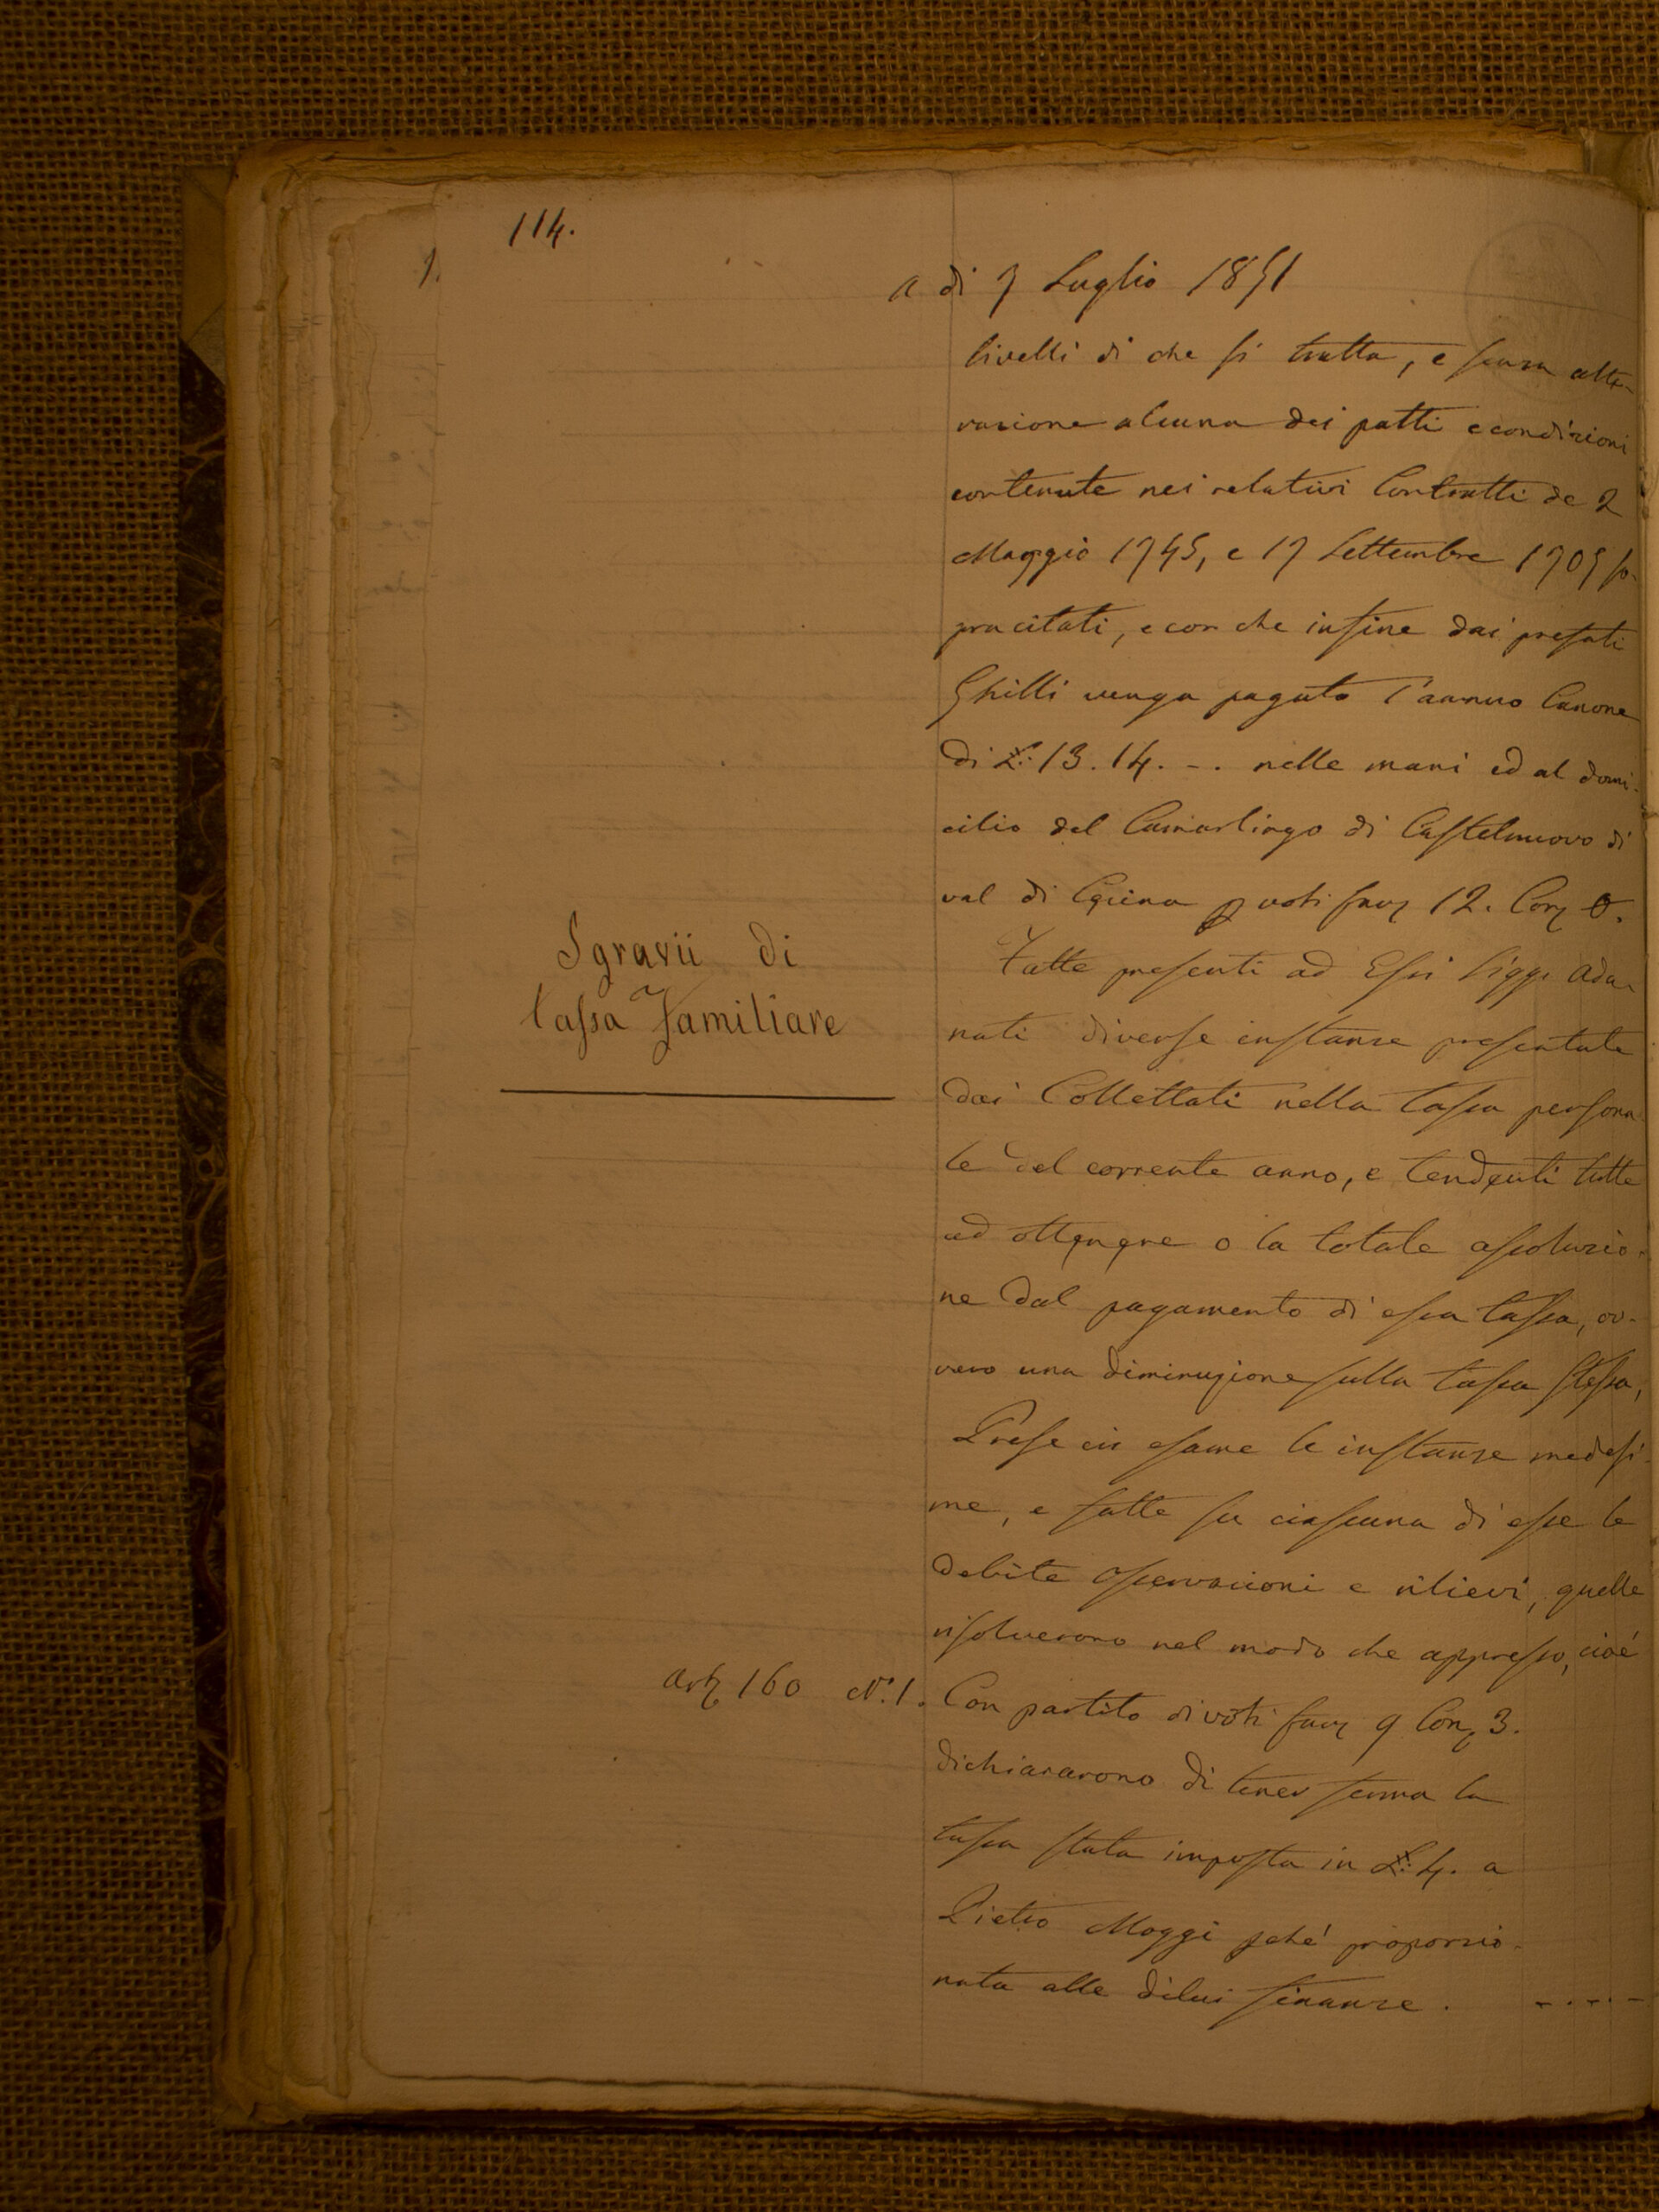 114.
a di 7 Luglio 1851
livelli di che si tratta, e senza alte-
razione alcuna dei patti e condizioni
contenute nei relativi Contratti de 2
Maggio 1745, e 17 Settembre 1705 so-
pracitati, e con che infine dai prefati
Ghilli venga pagato l'annuo Canone
di £: 13. 14. -. nelle mani ed al domi-
cilio del Camarlingo di Castelnuovo di
val di Cecina p voti favi 12. Con 0.
Sgravii di
Tassa Familiare
Fatte presenti ad Essi Sigg. Adu-
nati diverse instanze presentate
dai Collettati nella tassa persona
le del corrente anno, e tendenti tutte
ad ottenere o la totale assoluzio-
ne dal pagamento di essa tassa, ov-
vero una diminuzione sulla tassa stessa,
Prese in esame le instanze medesi-
me, e fatte su ciascuna di esse le
debite osservazioni e rilievi, quelle
risolverono nel modo che appresso, cioé
Art 160 N.° 1. Con partito di voti favi 9 Con 3.
dichiararono di tener ferma la
tassa stata imposta in £: 4. a
Pietro Moggi pché proporzio-
nata alle dilui finanze. - . - . -